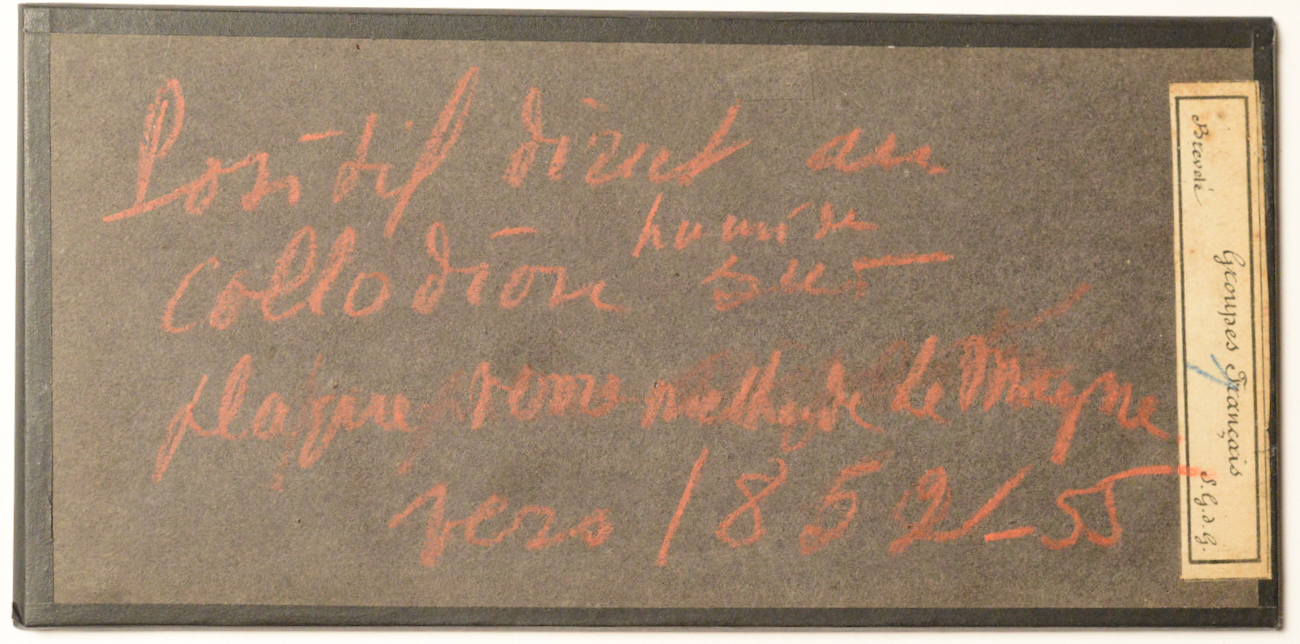 Positif direct au
collodion humide sur
plaque verre méthode Le Moyne
vers 1852-55
Breveté
Groupes Français
S.G.d.G.